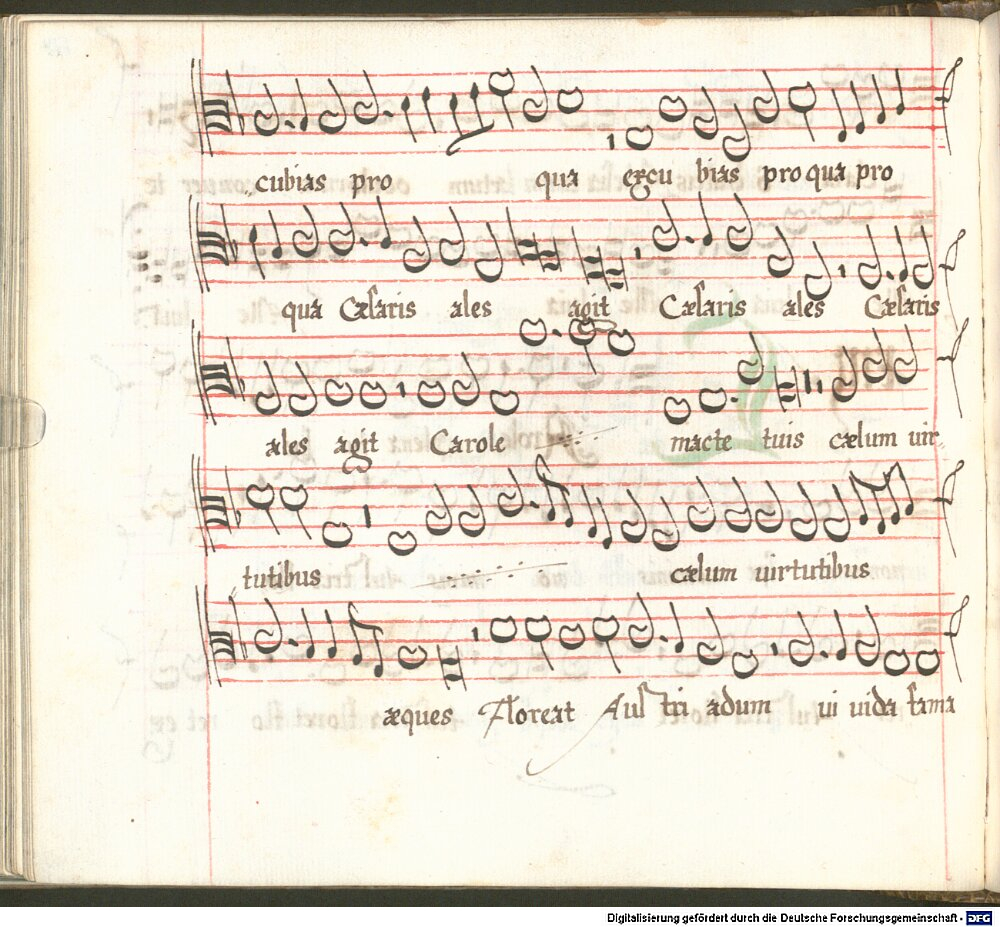 cubias pro qua excu bias pro qua pro
qua Cæsaris ales agit Cæsaris ales Cæsaris
ales agit Carole macte tuis cælum uir
tutibus cælum uirtutibus
æques Floreat Aus tri adum ui uida fama
Digitalisierung gefördert durch die Deutsche Forschungsgemeinschaft - DFG